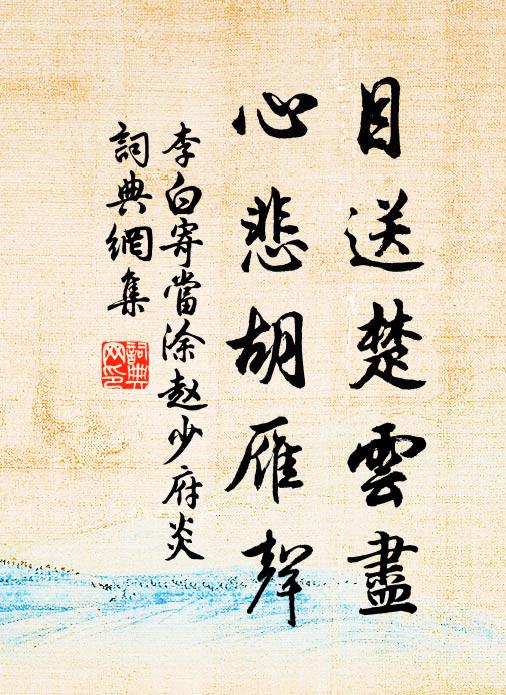 目送楚雲盡
心悲胡雁聲
李白寄當涂趙少府炎
詞典網集
詞典網印